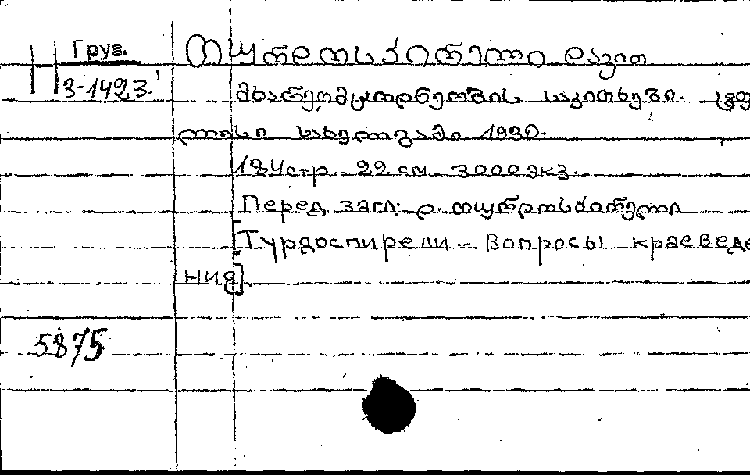 Груз. თურდოსპირელი დავით
3-1423
მხარეთმცოდნეობის საკითხები.
ლისი სახელგამი 1930.
184 стр. 22 см. 3000 экз.
Перед загл: დ. თურდოსპირელი
[Турдоспирели - Вопросы краеведе
ния]
5875